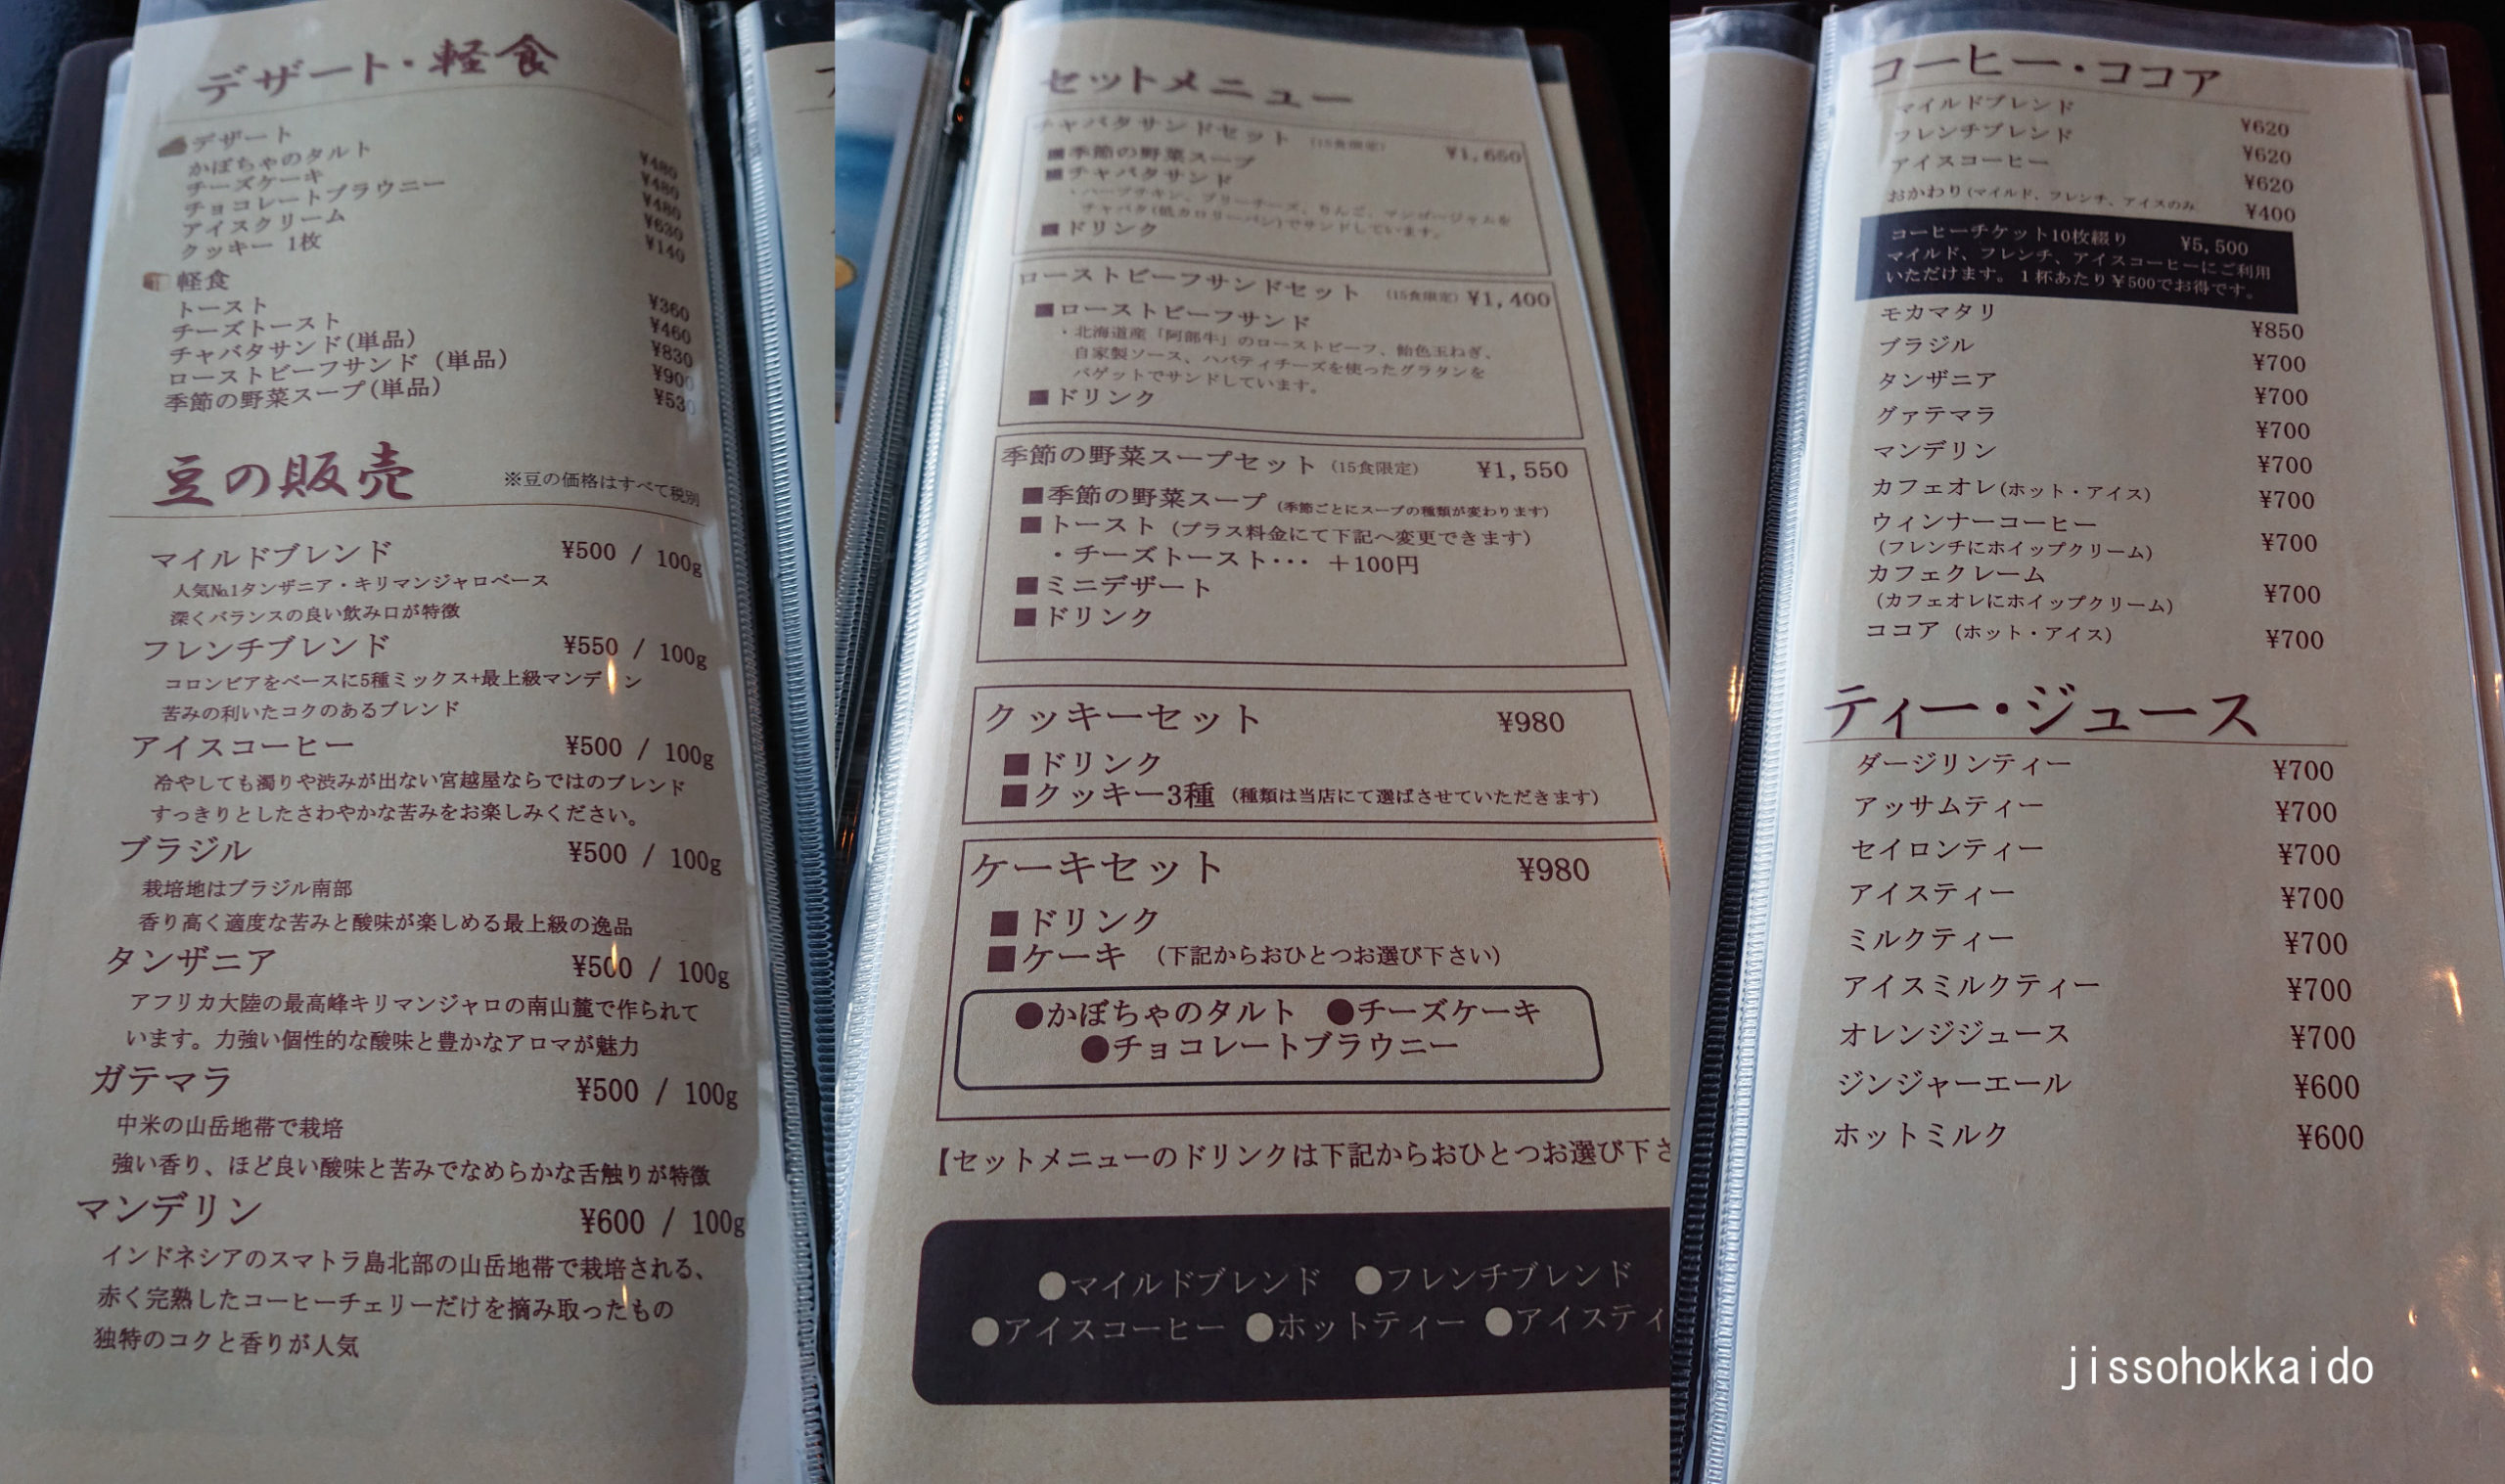 デザート・軽食
デザート
かぼちゃのタルト ¥480
チーズケーキ ¥480
チョコレートブラウニー ¥480
アイスクリーム ¥630
クッキー 1枚 ¥140
軽食
トースト ¥360
チーズトースト ¥460
チャバタサンド(単品) ¥830
ローストビーフサンド (単品) ¥900
季節の野菜スープ(単品) ¥530
豆の販売 ※豆の価格はすべて税別
マイルドブレンド ¥500 / 100g
人気№1タンザニア・キリマンジャロベース
深くバランスの良い飲み口が特徴
フレンチブレンド ¥550 / 100g
コロンビアをベースに5種ミックス+最上級マンデ ン
苦みの利いたコクのあるブレンド
アイスコーヒー ¥500 / 100g
冷やしても濁りや渋みが出ない宮越屋ならではのブレンド
すっきりとしたさわやかな苦みをお楽しみください。
ブラジル ¥500 / 100g
栽培地はブラジル南部
香り高く適度な苦みと酸味が楽しめる最上級の逸品
タンザニア ¥500 / 100g
アフリカ大陸の最高峰キリマンジャロの南山麓で作られて
います。力強い個性的な酸味と豊かなアロマが魅力
ガテマラ ¥500 / 100g
中米の山岳地帯で栽培
強い香り、ほど良い酸味と苦みでなめらかな舌触りが特徴
マンデリン ¥600 / 100g
インドネシアのスマトラ島北部の山岳地帯で栽培される、
赤く完熟したコーヒーチェリーだけを摘み取ったもの
独特のコクと香りが人気
セットメニュー
チャバタサンドセット (15食限定) ¥1,650
■季節の野菜スープ
■チャバタサンド
・ハーブチキン、ブリーチーズ、りんご、マンゴージャムを
チャバタ(低カロリーパン)でサンドしています。
■ドリンク
ローストビーフサンドセット (15食限定) ¥1,400
■ローストビーフサンド
・北海道産「阿部牛」のローストビーフ、飴色玉ねぎ、
自家製ソース、ハバティチーズを使ったグラタンを
バゲットでサンドしています。
■ドリンク
季節の野菜スープセット (15食限定) ¥1,550
■季節の野菜スープ (季節ごとにスープの種類が変わります)
■トースト (プラス料金にて下記へ変更できます)
・チーズトースト･･･ +100円
■ミニデザート
■ドリンク
クッキーセット ¥980
■ドリンク
■クッキー3種 (種類は当店にて選ばさせていただきます)
ケーキセット ¥980
■ドリンク
■ケーキ (下記からおひとつお選び下さい)
●かぼちゃのタルト ●チーズケーキ
●チョコレートブラウニー
【セットメニューのドリンクは下記からおひとつお選び下さ
●マイルドブレンド ●フレンチブレンド
●アイスコーヒー ●ホットティー ●アイスティ
コーヒー・ココア
マイルドブレンド ¥620
フレンチブレンド ¥620
アイスコーヒー ¥620
おかわり(マイルド、フレンチ、アイスのみ ¥400
コーヒーチケット10枚綴り ¥5,500
マイルド、フレンチ、アイスコーヒーにご利用
いただけます。1杯あたり¥500でお得です。
モカマタリ ¥850
ブラジル ¥700
タンザニア ¥700
グァテマラ ¥700
マンデリン ¥700
カフェオレ(ホット・アイス) ¥700
ウィンナーコーヒー
(フレンチにホイップクリーム) ¥700
カフェクレーム
(カフェオレにホイップクリーム) ¥700
ココア (ホット・アイス) ¥700
ティー・ジュース
ダージリンティー ¥700
アッサムティー ¥700
セイロンティー ¥700
アイスティー ¥700
ミルクティー ¥700
アイスミルクティー ¥700
オレンジジュース ¥700
ジンジャーエール ¥600
ホットミルク ¥600
jissohokkaido